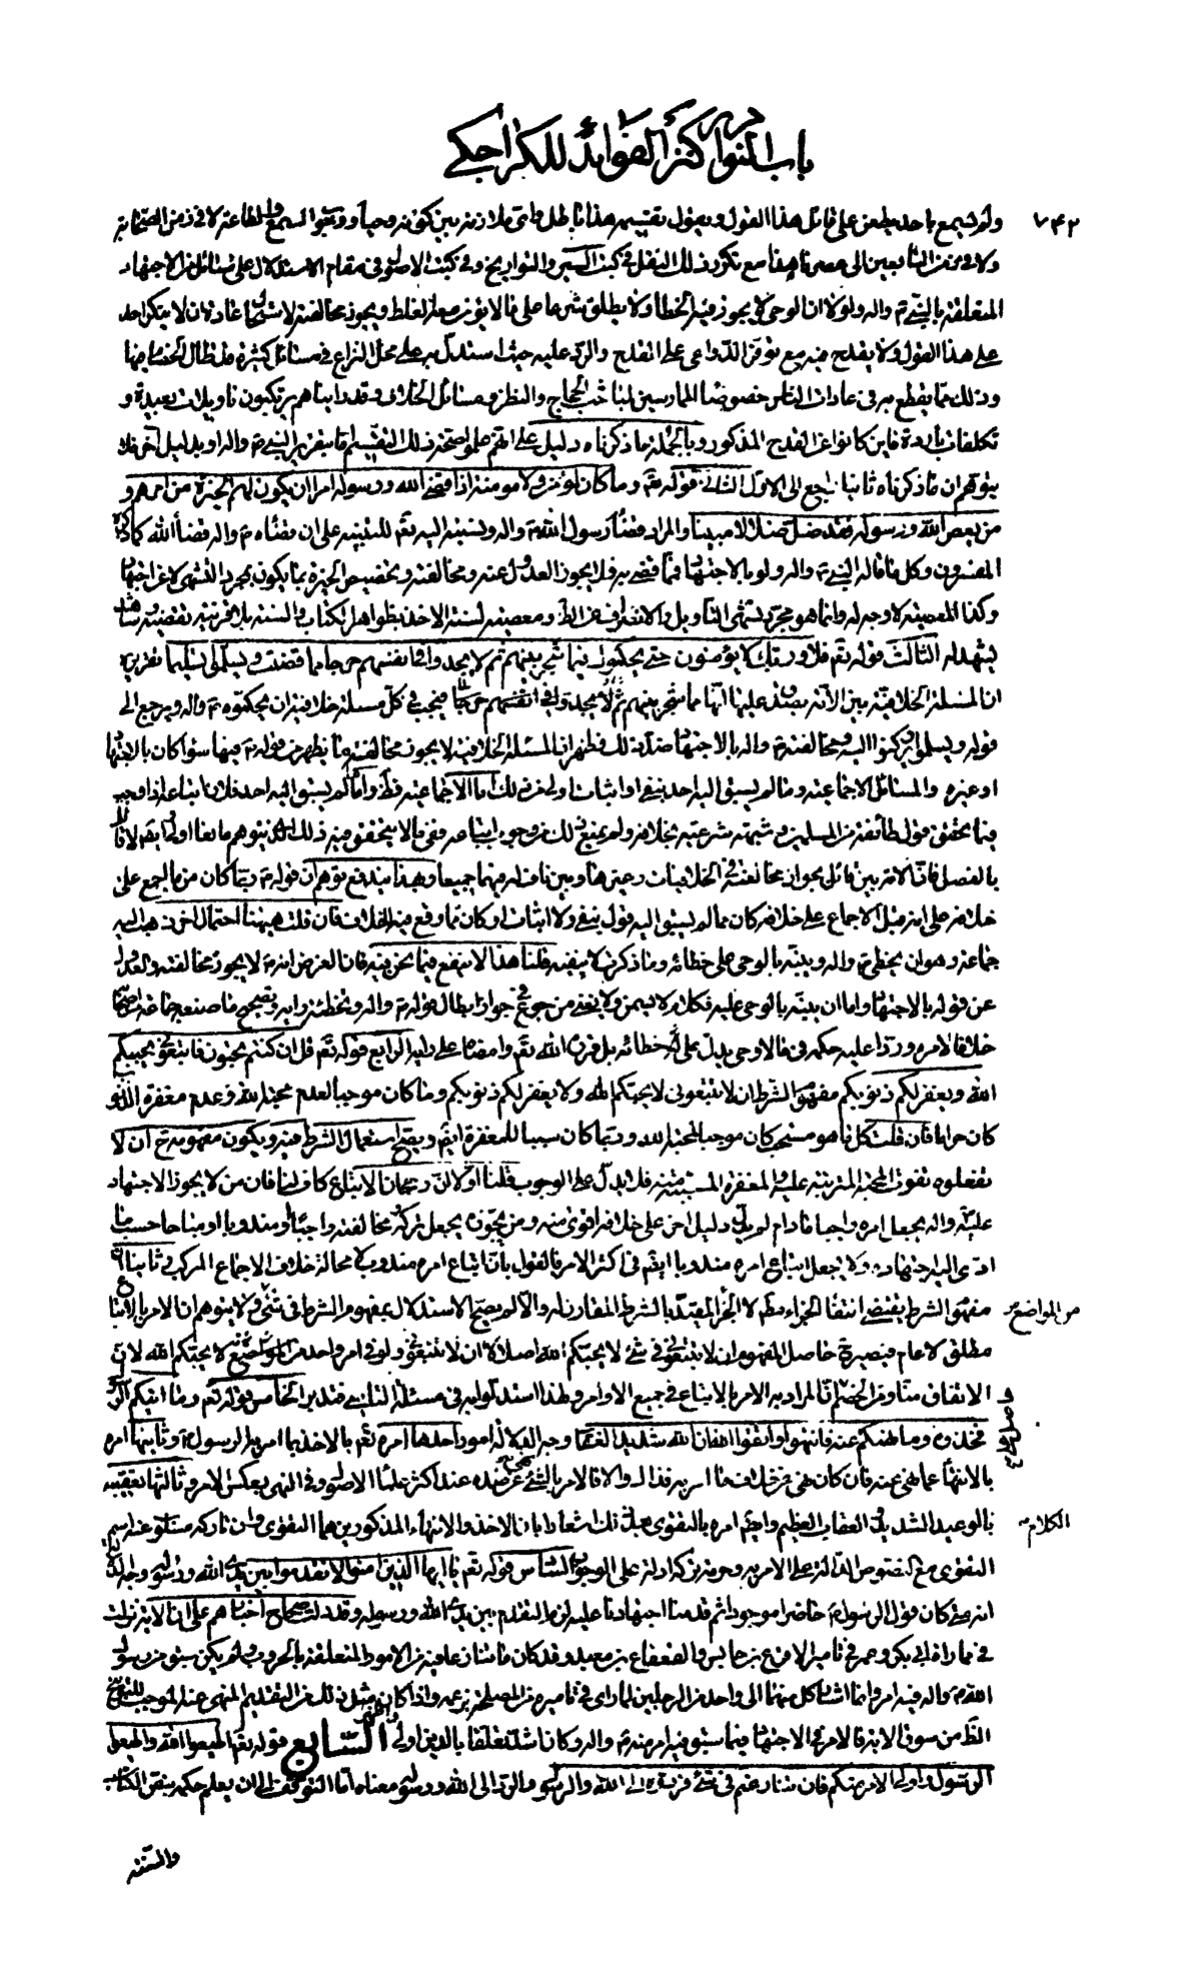 باب النوادر كنز الفوائد للكراجكي
٧٤٢
ولم يسمع باحد يطعن على قائل هذا القول ويقول تقسيم هذا باطل واى ملازمة بين كونه وحيا ووجوب السمع والطاعة لا فى زمن الصحابة
ولا فى زمن التابعين الى عصرنا هذا مع تكرر ذلك النقل فى كتب السير والتواريخ وفى كتب الاصول فى مقام الاستدلال على مسائل من الاجتهاد
المتعلقة بالنبي ص واله ولولا ان الوحى لا يجوز فيه الخطاء ولا يطلق شرعا على ما لا يؤمن معه الغلط ويجوز مخالفته لاستحال عادة ان لا ينكر احد
على هذا القول ولا يقدح فيه مع توفر الدواعى على القدح والرد عليه حيث استدل به على محل النزاع فى مسائل كثيرة
وذلك مما يقطع به فى عادات الناس خصوصا الممارسين لمباحث الحجاج والنظر فى مسائل الخلاف وقد رايناهم يرتكبون تاويلات بعيدة و
تكلفات باردة فاين كانوا عن القدح المذكور وبالجملة ما ذكرناه دليل على انهم علموا صحة ذلك التقسيم اما بتقرير النبي ص واله او بدليل اخر فلا
يتوهم ان ما ذكرناه ثانيا راجع الى الاول الثانى قوله تعم وما كان لمؤمن ولا مومنة اذا قضى الله ورسوله امرا ان يكون لهم الخيرة من امرهم و
من يعص الله ورسوله فقد ضل ضلالا مبينا والمراد قضاء رسول الله ص واله ونسبته اليه تعم للتنبيه على ان قضاه ص واله قضاء الله كما ذكره
المفسرون وكل ما قاله النبي ص واله ولو بالاجتهاد فمما قضى به فلا يجوز العدول عنه ومخالفته وتخصيص الخيرة بما يكون بمجرد التشهى
وكذا المعصية لا وجه له وانما هو مجرد تشهى التاويل والانحراف عن الظ ومعصية لسنة الاخذ بظواهر الكتاب والسنة بلا قرينة تقتضيه
يشهد له الثالث قوله تعم فلا وربك لا يؤمنون حتى يحكموك فيما شجر بينهم ثم لا يجدوا فى انفسهم حرجا مما قضيت ويسلموا تسليما تقريره
ان المسئلة الخلافية بين الامة يصدق عليها انها مما شجر بينهم ثم لا يجدوا فى انفسهم حرجا فيجب فى كل مسئلة خلافية ان يحكموه ص واله ويرجع الى
قوله ويسلموا ويركنوا اليه ومخالفته ص واله بالاجتهاد ضد ذلك فظهر ان المسئلة الخلافية لا يجوز مخالفته فيما يظهر من قوله ص فيها سواء كان بالاجتهاد
او غيره والمسائل الاجماعية وما لم يسبق اليه احد بنفى او اثبات اولى من ذلك اما الاجماعية فظ واما لم يسبق اليه احد فلان اتباعه اذا وجب
فيما تحقق قول طائفة من المسلمين وشبهة شرعية بخلافه ولم يمنع ذلك من وجوب اتباعه ففى ما لا يتحقق فيه ذلك الذى يتوهم مانعا اولى وايضا لا قائل
بالفصل فان الامة بين قائل بجواز مخالفته فى الخلافيات وغيرها وبين ناف له فيهما جميعا وبهذا يندفع توهم ان قوله ص ربما كان من ما اجمع على
خلافه على انه قبل الاجماع على خلافه كان مما لم يسبق اليه قول بنفى ولا اثبات او كان مما وقع فيه الخلاف فان قلت ههنا احتمال اخر ذهب اليه
جماعة وهو ان يخطى ص واله وينبه بالوحى على خطائه وما ذكرت لا ينفيه قلنا هذا لا ينفع فيما نحن فيه فان الغرض انه ص لا يجوز مخالفته والعدول
عن قوله بالاجتهاد واما ان ينبه بالوحى عليه فكلام لا يسمن ولا يغنى من جوع فى جواز ابطال قوله ص واله وتخطئة رايه وتصحيح ما صنعه جماعة
خلافا لامره وردا عليه حكمه فى ما لا وحى يدل على خطائه بل قرره الله تعم وامضاه على رايه الرابع قوله تعم قل ان كنتم تحبون الله فاتبعونى يحببكم
الله ويغفر لكم ذنوبكم مفهوم الشرط ان لا تتبعونى لا يحبكم الله ولا يغفر لكم ذنوبكم وما كان موجبا لعدم محبة الله وعدم مغفرة الذنوب
كان حراما فان قلت كل ما هو مستحب كان موجبا لمحبة الله وربما كان سببا للمغفرة ايضا ويصح استعمال الشرط فيه ويكون مفهومه ح ان لا
تفعلوه تفوت المحبة المترتبة عليه والمغفرة المسببة منه فلا يدل على الوجوب قلنا اولا ان رجحان الاتباع كاف لنا فان من لا يجوز الاجتهاد
عليه ص واله يجعل امره واجبا ما دام لم يدل دليل اخر على خلافه اقوى منه ومن يجوزه يجعل تركه ومخالفته واجبا او مندوبا او مباحا حسب ما
ادى اليه اجتهاده ولا يجعل اتباع امره مندوبا ايضا فى اكثر الامر فالقول بان اتباع امره مندوب لا محالة خلاف الاجماع المركب وثانيا
مفهوم الشرط يقتضى انتفاء الجزاء مط لا الجزاء المقيد بالشرط المقارن له والا لم يصح الاستدلال بمفهوم الشرط فى شئ ولا يتوهم ان الامر بالاتباع
من المواضع
مطلق لا عام فيصير حاصل المفهوم ان لا تتبعونى فى شئ لا يحببكم الله اصلا لا ان لا تتبعونى ولو فى امر واحد من المواضع لا يحببكم الله لان
الاتفاق منا ومن الخصم ان المراد به الامر بالاتباع فى جميع الاوامر ولهذا استدلوا به فى مسئلة التاسى فتدبر الخامس قوله تعم وما اتيكم الرسول
فخذوه وما نهيكم عنه فانتهوا واتقوا الله ان الله شديد العقاب وجه الدلالة امور احدها امره تعم بالاخذ بما امر به الرسول ص وثانيها امره
بالانتهاء عما نهى عنه فان كان نهى عن خلاف ما امر به فذاك والا فالامر بالشئ نهى عن ضده عند اكثر علماء الاصول وفى النهى بعكس الامر وثالثها تعقيبه
بالوعيد الشديد العقاب العظيم وايضا امره بالتقوى بعد ذلك اشعارا بان الاخذ والانتهاء المذكورين هما التقوى وان تاركه مسلوب عنه اسم
الكلام
التقوى مع النصوص الدالة على الامر به وحرمة تركه دلالة على الوجوب السادس قوله تعم يا ايها الذين امنوا لا تقدموا بين يدى الله ورسوله وجه الدلالة
انه متى كان قول الرسول ص حاضرا موجودا ثم قدمنا اجتهادنا عليه لزم التقدم بين يدى الله ورسوله وقد دلت صحاح اخبارهم على ان الاية نزلت
فى مماراة ابى بكر وعمر فى تامير الاقرع بن حابس والقعقاع بن معبد وقد كان ما تنازعا فيه من الامور المتعلقة بالحروب ولم يكن سبق من رسول
الله ص واله فيه امر وانما اشار كل منهما الى واحد من الرجلين لما راى فى تاميره من المصلحة بزعمه واذا كان مثل ذلك من التقديم المنهى عنه الموجب
الظ من سوق الاية فالامر فى الاجتهاد فيما سبق فيه امر منه ص واله وكان اشد تعلقا بالدين اولى واظهر السابع قوله تعم اطيعوا الله واطيعوا
الرسول واولى الامر منكم فان تنازعتم فى شئ فردوه الى الله والرسول والرد الى الله ورسوله معناه اما التوقف الى ان يعلم حكمه بنص الكتاب
والسنة